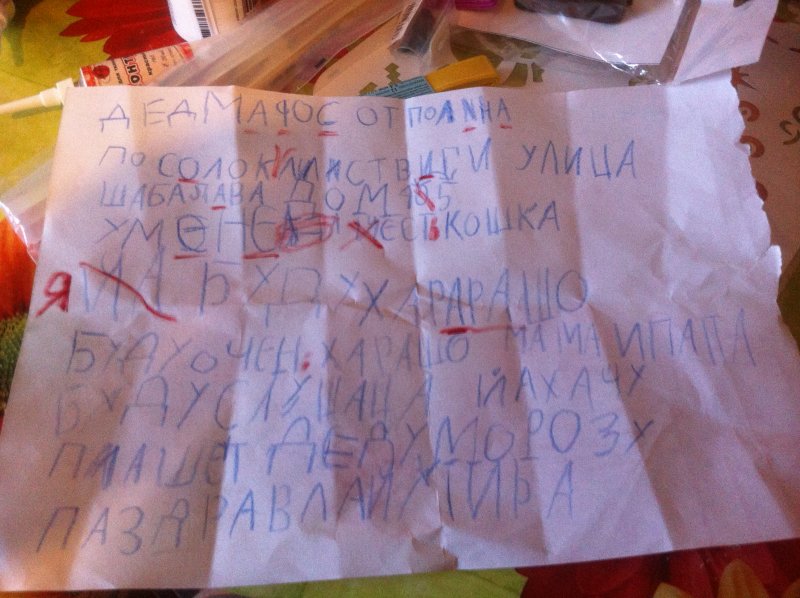 ДЕДМАФОС ОТ ПОЛИНА
ПОСОЛОК УЛИЦА
ШАБАЛАВА ДОМ
УМЕНЕ ЕСТЬ КОШКА
Я БУДУ ХАРАРАШО
БУДУ ОЧЕНЬ ХАРАШО МАМА И ПАПА
БУДУ СЛУШАЦА ЙА ХАЧУ
ПЛАШЕТ ДЕДУ МОРОЗУ
ПАЗДРАВЛАЙУ ТИБА